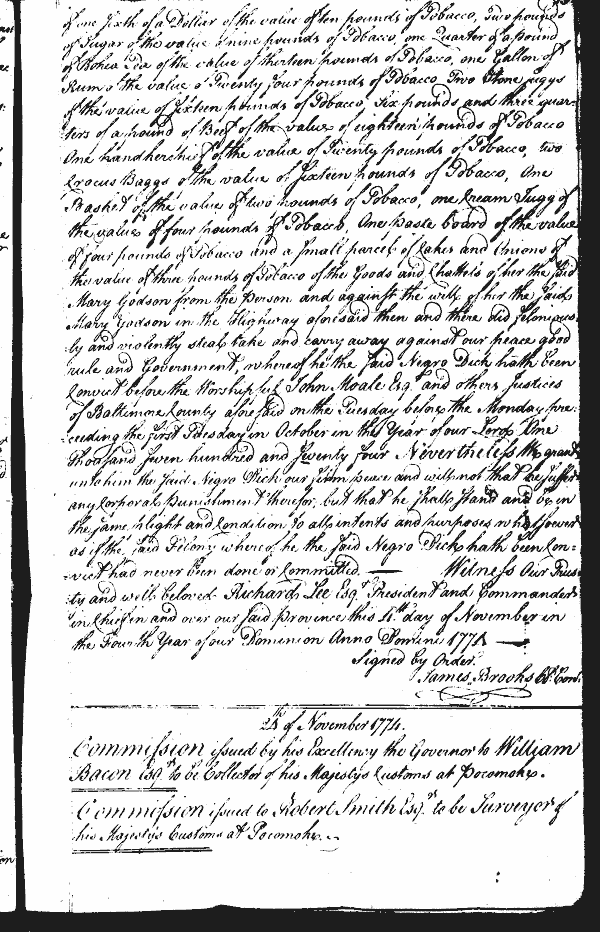 of one Sixth of a Dollar of the value of ten pounds of Tobacco, Two pounds
of Sugar of the value of nine pounds of Tobacco, one Quarter of a pound
of Bohea Tea of the value of thirteen pounds of Tobacco, one Gallon of
Rum of the value of Twenty four pounds of Tobacco, Two Stone Juggs
of the value of Sixteen pounds of Tobacco, Six pounds and three quar-
ters of a pound of Beef of the value of eighteen pounds of Tobacco
One handkerchief of the value of Twenty pounds of Tobacco, two
Crocus Baggs of the value of Sixteen pounds of Tobacco, One
Basket of the value of two pounds of Tobacco, one Cream Jugg of
the value of four pounds of Tobacco, One paste board of the value
of four pounds of Tobacco and a Small parcel of Cakes and Onions of
the value of three pounds of Tobacco of the Goods and Chattels of her the said
Mary Godson from the Person and against the will of her the said
Mary Godson in the Highway aforesaid then and there did felonious-
ly and violently steal take and carry away against our peace good
rule and Government, whereof he the said Negro Dick hath been
Convict before the Worshipful John Moale Esq. and others Justices
of Baltimore County aforesaid on the Tuesday before the Monday pre-
ceeding the first Tuesday in October in the Year of our Lord One
Thousand Seven hundred and Seventy four Nevertheless We grant
unto him the said Negro Dick our firm peace and will not that he suffer
any Corporal Punishment therefor, but that he shall Stand and be in
the same plight and Condition to all intents and purposes whatsoever
as if the said Felony whereof he the said Negro Dick hath been Con-
vict had never been done or Committed. — Witness Our Trus-
ty and well beloved Richard Lee Esqr. President and Commander
in Chief in and over our said Province this 4th day of November in
the Fourth Year of our Dominion Anno Domini 1774 —
Signed by Order
James Brooks Cl. Con.
24th of November 1774.
Commission issued by his Excellency the Governor to William
Bacon Esqr. to be Collector of his Majestys Customs at Pocomoke.
Commission issued to Robert Smith Esqr. to be Surveyor of
his Majestys Customs at Pocomoke. —